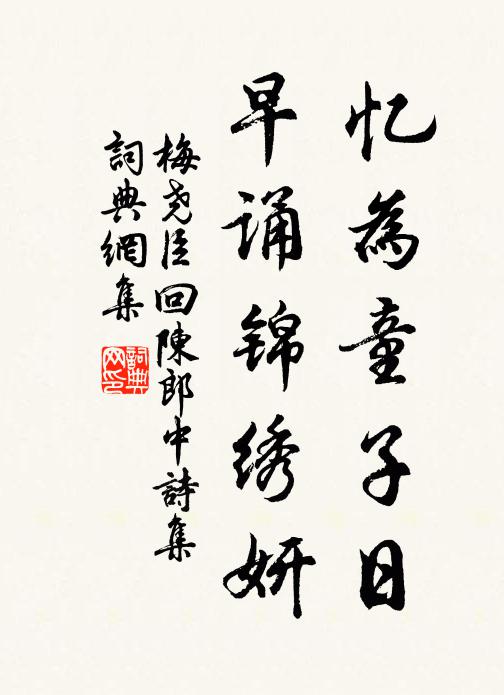 忆為童子日
早诵锦绣妍
梅尧臣回陳郎中詩集
詞典網集
詞典网印